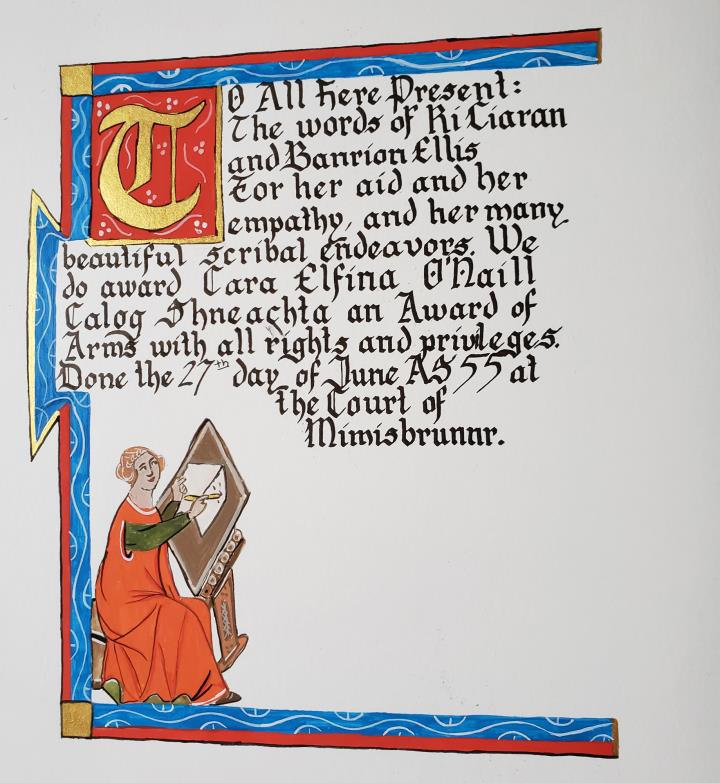 To All Here Present:
The words of Ri Ciaran
and Banrion Ellis
For her aid and her
empathy, and her many
beautiful scribal endeavors. We
do award Cara Elfina O'Naill
Calog Shneachta an Award of
Arms with all rights and privileges.
Done the 27th day of June AS 55 at
the Court of
Mimisbrunnr.